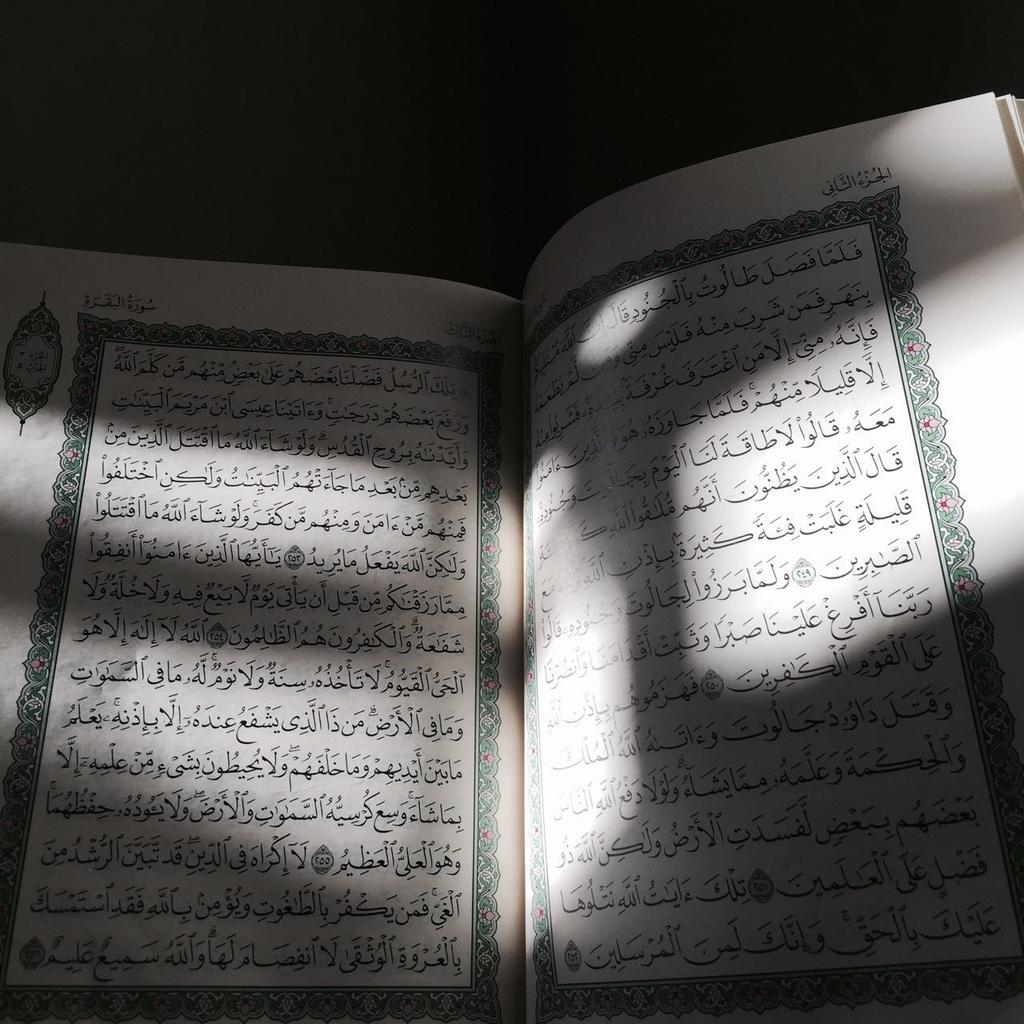 الجزء الثاني
فَلَمَّا فَصَلَ طَالُوتُ بِٱلْجُنُودِ قَالَ إِنَّ ٱللَّهَ مُبْتَلِيكُم
بِنَهَرٍ فَمَن شَرِبَ مِنْهُ فَلَيْسَ مِنِّي وَمَن لَّمْ يَطْعَمْهُ
فَإِنَّهُۥ مِنِّيٓ إِلَّا مَنِ ٱغْتَرَفَ غُرْفَةَۢ بِيَدِهِۦ فَشَرِبُوا۟ مِنْهُ
إِلَّا قَلِيلًا مِّنْهُمْ فَلَمَّا جَاوَزَهُۥ هُوَ وَٱلَّذِينَ ءَامَنُوا۟
مَعَهُۥ قَالُوا۟ لَا طَاقَةَ لَنَا ٱلْيَوْمَ بِجَالُوتَ وَجُنُودِهِۦ
قَالَ ٱلَّذِينَ يَظُنُّونَ أَنَّهُم مُّلَٰقُوا۟ ٱللَّهِ كَم مِّن فِئَةٍ
قَلِيلَةٍ غَلَبَتْ فِئَةً كَثِيرَةَۢ بِإِذْنِ ٱللَّهِ وَٱللَّهُ مَعَ
ٱلصَّٰبِرِينَ ٢٤٩ وَلَمَّا بَرَزُوا۟ لِجَالُوتَ وَجُنُودِهِۦ قَالُوا۟
رَبَّنَآ أَفْرِغْ عَلَيْنَا صَبْرًا وَثَبِّتْ أَقْدَامَنَا وَٱنصُرْنَا
عَلَى ٱلْقَوْمِ ٱلْكَٰفِرِينَ ٢٥٠ فَهَزَمُوهُم بِإِذْنِ ٱللَّهِ
وَقَتَلَ دَاوُۥدُ جَالُوتَ وَءَاتَىٰهُ ٱللَّهُ ٱلْمُلْكَ
وَٱلْحِكْمَةَ وَعَلَّمَهُۥ مِمَّا يَشَآءُ وَلَوْلَا دَفْعُ ٱللَّهِ ٱلنَّاسَ
بَعْضَهُم بِبَعْضٍ لَّفَسَدَتِ ٱلْأَرْضُ وَلَٰكِنَّ ٱللَّهَ ذُو
فَضْلٍ عَلَى ٱلْعَٰلَمِينَ ٢٥١ تِلْكَ ءَايَٰتُ ٱللَّهِ نَتْلُوهَا
عَلَيْكَ بِٱلْحَقِّ وَإِنَّكَ لَمِنَ ٱلْمُرْسَلِينَ ٢٥٢
الجزء الثالث
سورة البقرة
تِلْكَ ٱلرُّسُلُ فَضَّلْنَا بَعْضَهُمْ عَلَىٰ بَعْضٍ مِّنْهُم مَّن كَلَّمَ ٱللَّهُ
وَرَفَعَ بَعْضَهُمْ دَرَجَٰتٍ وَءَاتَيْنَا عِيسَى ٱبْنَ مَرْيَمَ ٱلْبَيِّنَٰتِ
وَأَيَّدْنَٰهُ بِرُوحِ ٱلْقُدُسِ وَلَوْ شَآءَ ٱللَّهُ مَا ٱقْتَتَلَ ٱلَّذِينَ مِنۢ
بَعْدِهِم مِّنۢ بَعْدِ مَا جَآءَتْهُمُ ٱلْبَيِّنَٰتُ وَلَٰكِنِ ٱخْتَلَفُوا۟
فَمِنْهُم مَّنْ ءَامَنَ وَمِنْهُم مَّن كَفَرَ وَلَوْ شَآءَ ٱللَّهُ مَا ٱقْتَتَلُوا۟
وَلَٰكِنَّ ٱللَّهَ يَفْعَلُ مَا يُرِيدُ ٢٥٣ يَٰٓأَيُّهَا ٱلَّذِينَ ءَامَنُوٓا۟ أَنفِقُوا۟
مِمَّا رَزَقْنَٰكُم مِّن قَبْلِ أَن يَأْتِيَ يَوْمٌ لَّا بَيْعٌ فِيهِ وَلَا خُلَّةٌ وَلَا
شَفَٰعَةٌ وَٱلْكَٰفِرُونَ هُمُ ٱلظَّٰلِمُونَ ٢٥٤ ٱللَّهُ لَآ إِلَٰهَ إِلَّا هُوَ
ٱلْحَيُّ ٱلْقَيُّومُ لَا تَأْخُذُهُۥ سِنَةٌ وَلَا نَوْمٌ لَّهُۥ مَا فِي ٱلسَّمَٰوَٰتِ
وَمَا فِي ٱلْأَرْضِ مَن ذَا ٱلَّذِي يَشْفَعُ عِندَهُۥٓ إِلَّا بِإِذْنِهِۦ يَعْلَمُ
مَا بَيْنَ أَيْدِيهِمْ وَمَا خَلْفَهُمْ وَلَا يُحِيطُونَ بِشَيْءٍ مِّنْ عِلْمِهِۦٓ إِلَّا
بِمَا شَآءَ وَسِعَ كُرْسِيُّهُ ٱلسَّمَٰوَٰتِ وَٱلْأَرْضَ وَلَا يَـُٔودُهُۥ حِفْظُهُمَا
وَهُوَ ٱلْعَلِيُّ ٱلْعَظِيمُ ٢٥٥ لَآ إِكْرَاهَ فِي ٱلدِّينِ قَد تَّبَيَّنَ ٱلرُّشْدُ مِنَ
ٱلْغَيِّ فَمَن يَكْفُرْ بِٱلطَّٰغُوتِ وَيُؤْمِنۢ بِٱللَّهِ فَقَدِ ٱسْتَمْسَكَ
بِٱلْعُرْوَةِ ٱلْوُثْقَىٰ لَا ٱنفِصَامَ لَهَا وَٱللَّهُ سَمِيعٌ عَلِيمٌ ٢٥٦
الجزء ٣
الحزب ٥